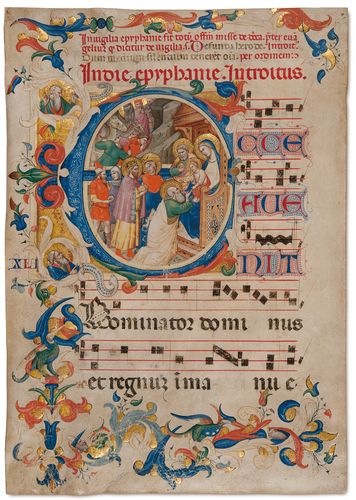 Inuigilia epyphanie fit totũ offm̃ misse de dñica. preter euã
geliuȝ q̃ dicitur de uigilia. Defuncto herode. Introit.
Dum medium silentium teneret oĩa. per ordinem
Indie epyphanie. Introitus.
E
CCE
UE
NIT
XLI
dominator domi nus
et regnuȝ ima nu e